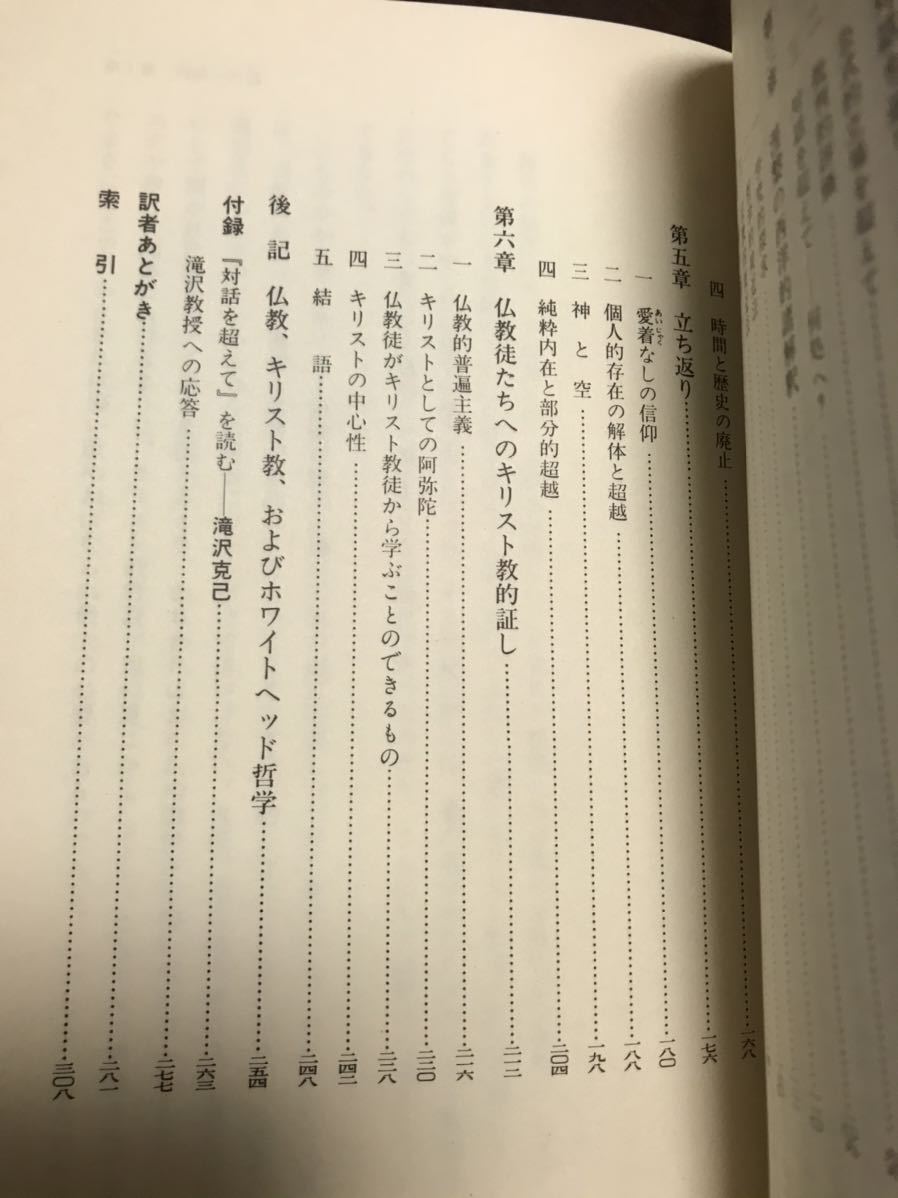 四 時間と歴史の廃止……一六八
第五章 立ち返り……一七六
一 愛着なしの信仰……一八〇
あいじゃく
二 個人的存在の解体と超越……一八八
三 神と空……一九八
四 純粋内在と部分的超越……二〇四
第六章 仏教徒たちへのキリスト教的証し……二一二
一 仏教的普遍主義……二一六
二 キリストとしての阿弥陀……二二〇
三 仏教徒がキリスト教徒から学ぶことのできるもの……二二八
四 キリストの中心性……二四二
五 結語……二四八
後記 仏教、キリスト教、およびホワイトヘッド哲学……二五四
付録 『対話を超えて』を読む——滝沢克己……二六三
滝沢教授への応答……二七七
訳者あとがき……二八一
索引……三〇八